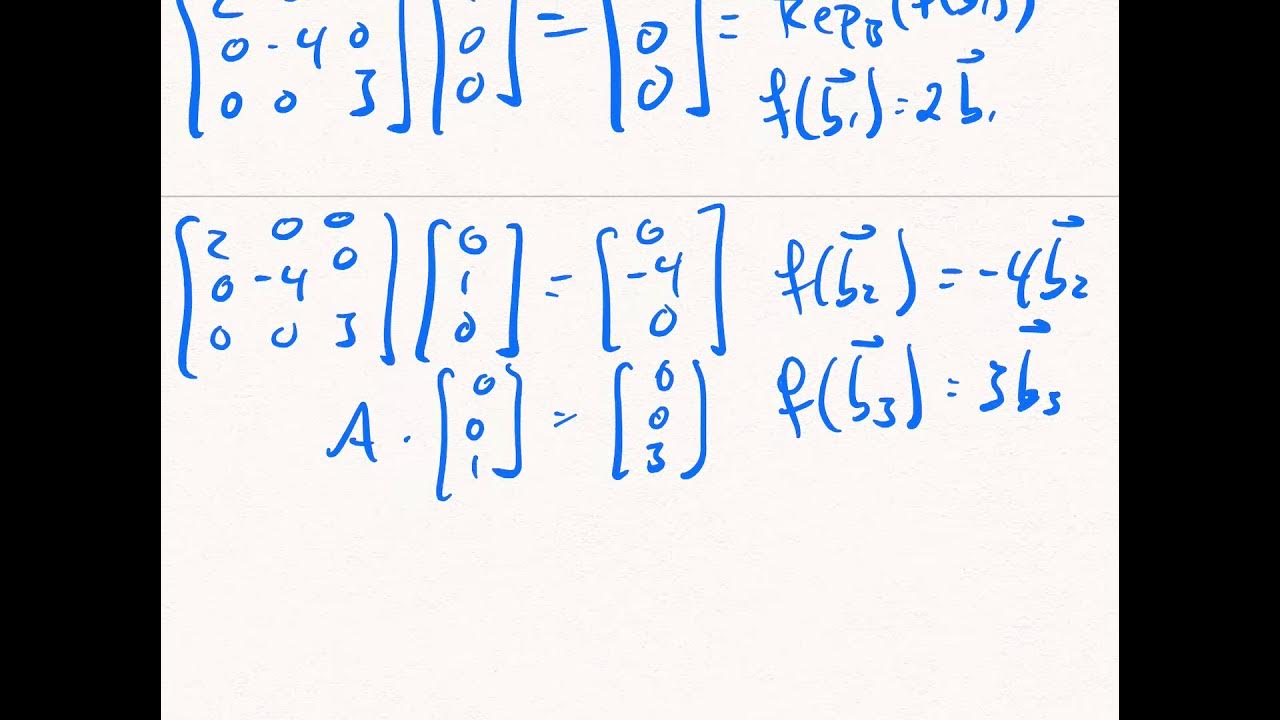 [2 0 0 - 4 0 0 0 3] [0 0] = [0 0] = RepB (f(b⃗1))
f(b⃗1) = 2b⃗1
[2 0 0
0 -4 0
0 0 3] [0 1 0] = [0 -4 0] f(b⃗2) = -4b⃗2
A · [0 0 1] = [0 0 3] f(b⃗3) = 3b⃗3